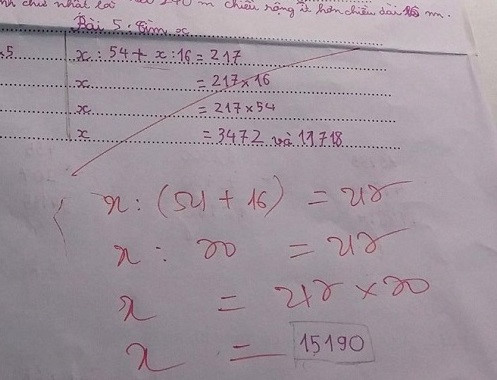 chữ nhật là 240 m chiều rộng ít hơn chiều dài m.
Bài 5. Tìm x
x : 54 + x : 16 = 217
x = 217 x 16
x = 217 x 54
x = 3472 và 11718
x : (54 + 16) = 217
x : 70 = 217
x = 217 x 70
x = 15190